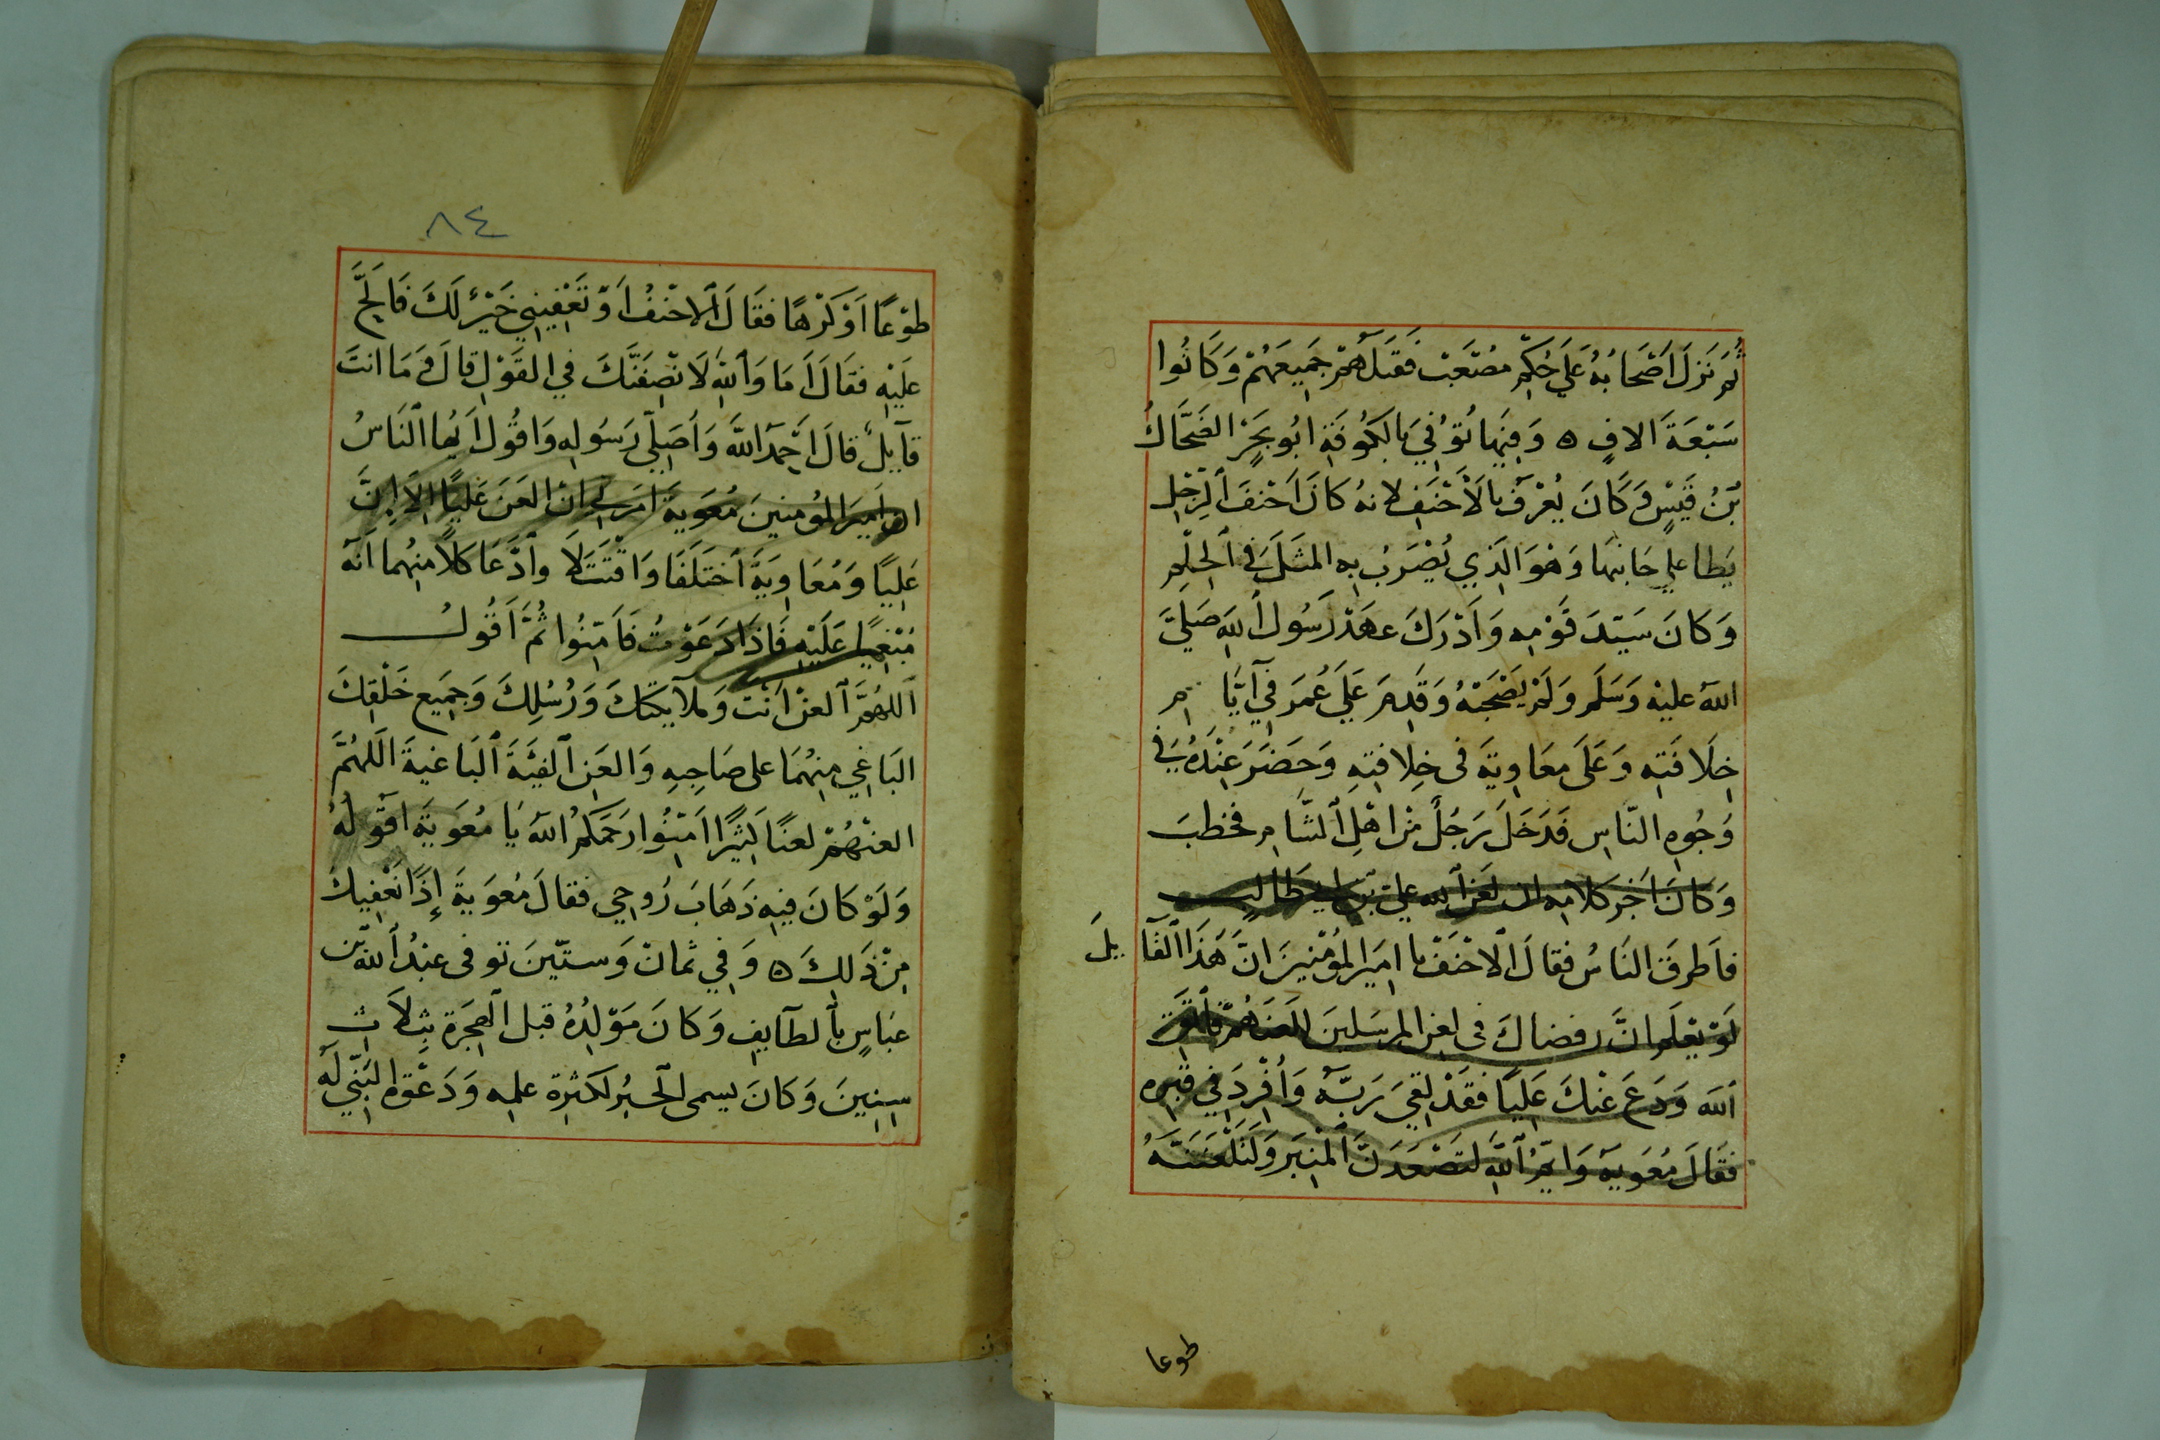 ثُمَّ نَزَلَ اَصْحَابُهُ عَلَي حُكْمِ مصْعَبْ فَقَتَلَهُمْ جَمِيعَهُمْ وَكَانُوا
سَبْعَةَ الافٍ ه وَفِيهَا تُوُفِيَ بالكُوفَةِ ابُو بَحِرْ الضَحَّاكُ
بْنُ قَيْسٍ وَكَانَ يُعْرَفُ بالَأحْنَفِ لانهُ كَانَ اَحْنَفَ الرِّجْلِ
يَطا علي جَانبَها وَهْوَ الَذِي يُضْرَبُ بِهِ المثَلَ فِى الحِلْمِ
وَكَانَ سَيّدَ قَوْمِهِ وَاَدْرَكَ عهَدْ رَسُولُ اللهِ صَلّيَ
اللهُ عليْهِ وَسَلَم وَلَمْ يصْحَبْهُ وَقَدِمَ عَلَي عُمَرَ فِي آيَّا م
خِلَافَتِه وَعَلَى معَاوِيَة فى خِلافتِهِ وَحَضَرَ عِنْدَهُ فِي
وُجُوهِ النّاسِ فَدَخَلَ رَجُلٌ مْن اهْلِ الشَّامِ فخطبَ
وَكانَ اَخِر كلامِه ان لعَن الله علي بن ابي طَالبٍ
فأَطرقَ النَاسُ فقالَ الاحْنَفْ يا امِيَر المُؤمْنِينَ انَّ هَذَا القَآيلَ
لَوْ يعْلَم انَّ رضاكَ فى لعن المرسَلينَ لَلعَنَهُمْ فاتّقِ
اللَه وَدَعَ عنْكَ عَليًا فقَدْ لقيَ رَبَّهُ وَاُفْرِدَ فِي قبْرِه
فقَالَ مُعَويهَ وَايْمُ اللهِ لتَصْعَدَنَّ المْنِبَر وَلَتَلْعَنَنَّهُ
طوعا
٨٤
طوْعًا اَوْ كَرْهًا فقَالَ الاحْنفُ اَوْ تَعْفِيِنِي خَيْرٌ لَكَ فَالَحَّ
علَيْهِ فقَالَ اَمَا وَاللهِ لَانْصِفَنَّكَ فِي القَوْلِ قالَ وَمَا انتَ
قآيلٌ قالَ احْمَدُ اللهَّ وَاُصَلِي رَسُولِهِ وَاقُول اَيُها النَاسُ
ان اَمِيَر المُؤمِنينَ مُعَويةَ امَرَني اِنْ العَنَ عَليًا الَا اِنَّ
عَلِيًا وَمُعَاوِيَةَ اخْتَلَفَا وَاقْتَتَلَا وادَّعَا كلاًّ منِهُما اَنَهُ
مُبْغِيًا عَلَيْهِ فَاِذَا دَعَوْتُ فَاَمِّنُوا ثُمَّ اَقُولُ
اَللهُمَّ العنْ اَنْتَ وَملآيكَتكَ وَرُسُلِكَ وَجمِيَع خَلْقِكَ
البَاغِي مِنهُمَا على صَاحِبِهِ وَالعَنِ الفِئَةَ البَاغيةَ اللَهُمَّ
العنْهُمْ لعنًا كَثيْرًا اَمِّنُوا رَحمَكمُ اللهُ يَا مُعَوَيَة اقوُلهُ
وَلَوْ كانَ فيِهِ ذَهَابَ رُوحِي فقالَ مُعَوَيةَ إِذًا نَعْفِيكَ
مِنْ ذَلِكَ ه وَفِي ثمانْ وَستّيَن توفى عبْدُ اللهِ بْن
عبَاسٍ بالطآيفِ وَكانَ مَوْلِدُهُ قبل الهِجْرَة بِثلَاثِ
سِنِينَ وَكَانَ يسمى الحَبْرُ لكَثرة علمِهِ وَدَعْوَة النَبّي لَهُ